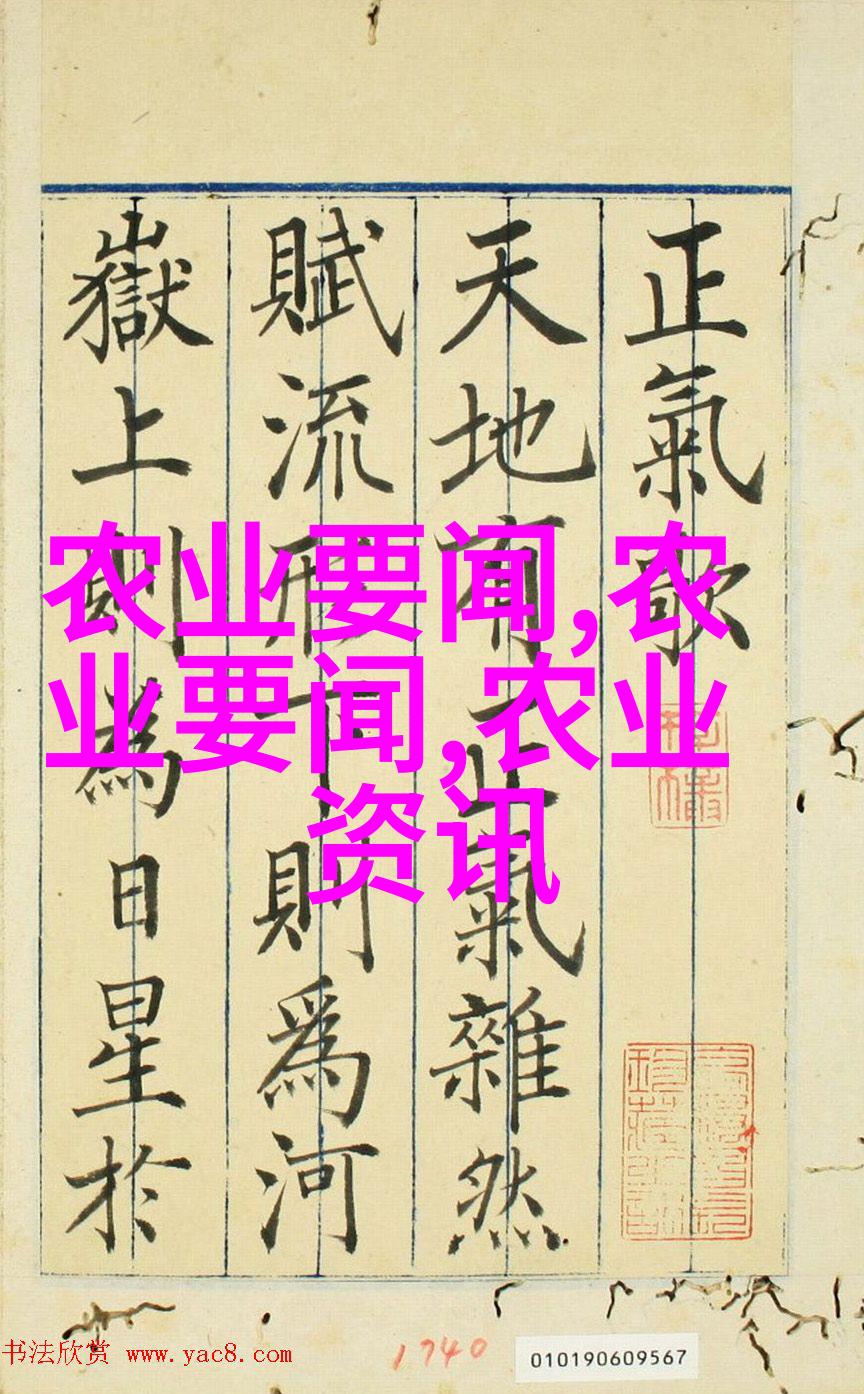 正氣歌
天地有正氣雜然
賦流形下則爲河
嶽上則為日星於
农业要闻,农
业要闻,农业
资讯
书法欣赏 www.yac8.com
1740
010190609567